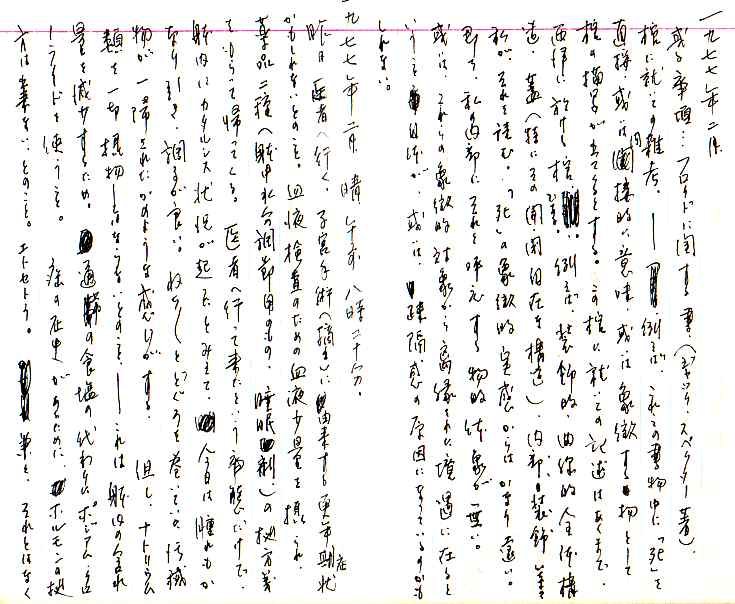 一九七七年二月
或る事項… フロイドに関する書、(ジャック・スペクター著)、
棺に就いての雑考。― 例えば、これらの書物中に「死」を
直接、或いは間接的に意味、或いは象徴する物として
棺の描写があるとする。この棺に就いての記述はあくまで、
西洋に於ける棺であり、例えば、装飾的、曲線的全体構
造、蓋(特にその開閉自在な構造)、内部の装飾等
私がそれを読む。「死」の象徴的実感からはかなり遠い。
即ち、私の内部にそれを呼応する物的対象が無い。
或いは、これらの象徴的対象から離縁された境遇に在ると
いうこと自体が、或いは、疎隔感の原因になっているのかも
しれない。
一九七七年二月 晴 午前 八時二十分。
昨日医者へ行く。子宮手術(摘出)に由来する更年期症状
かもしれないとのこと。血液検査のための血液少量を摂られ、
薬品二種(体中水分調節用のもの、睡眠剤)の処方箋
をもらって帰ってくる。医者へ行って来たという事態だけで、
体内にカタルシス状況が起ったとみえて、今日は腫れもか
なり引き、調子が良い。ねちねちととぐろを巻いていた汚穢
物が一掃されたかのような感じがする。但し、ナトリウム
類を一切摂取してはならないとのこと、― これは体内の含水
量を減少するため。通常の食塩の代わりに、ポジアム・クロ
ーライドを使うこと。 癌の歴史があるために、ホルモンの投
方は出来ないとのこと。エトセトラ。 単に、それとはなく